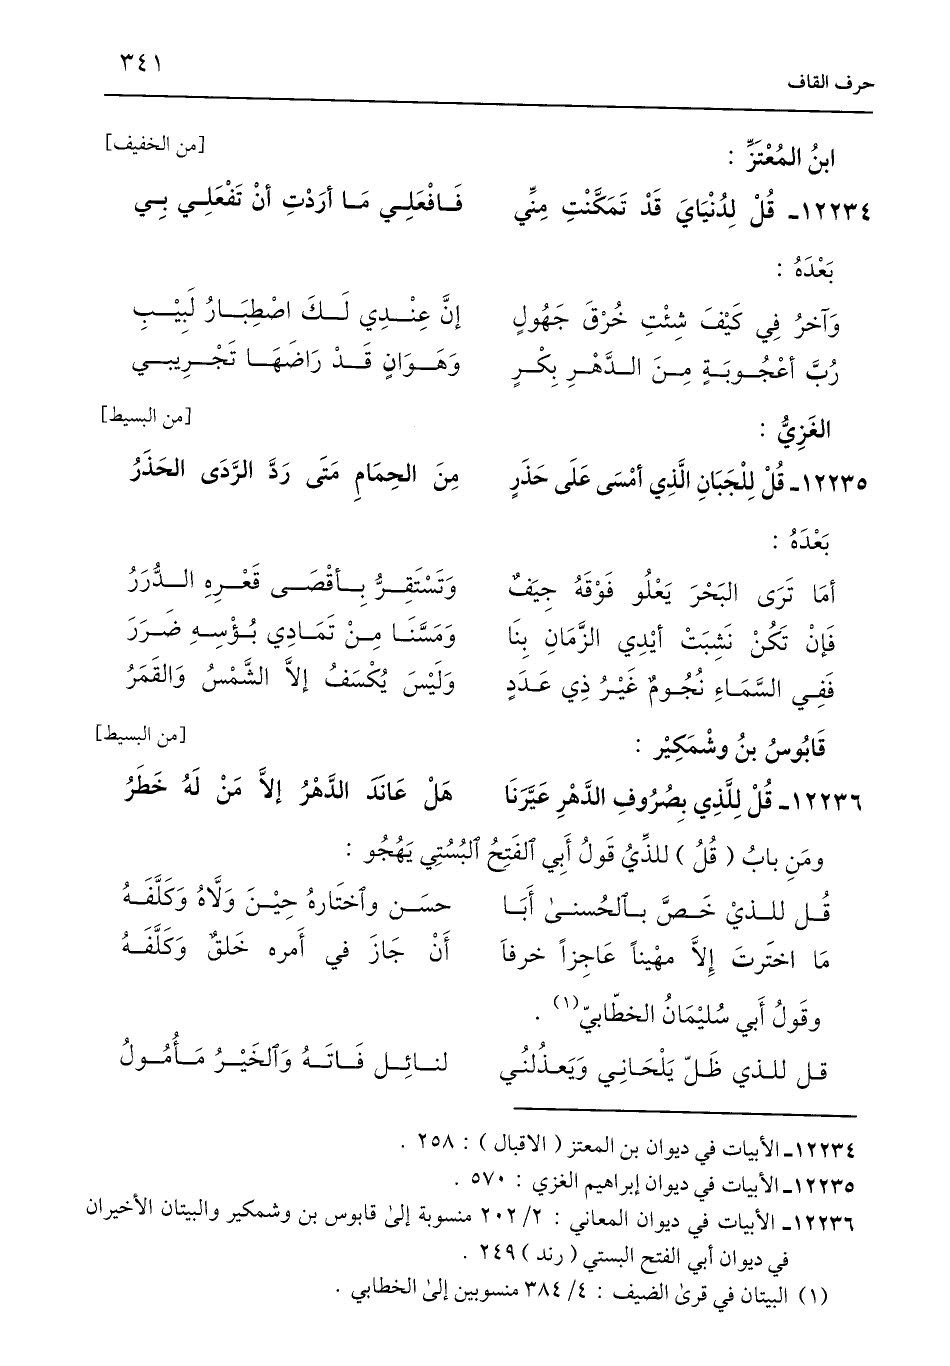 ٣٤١
حرف القاف
ابنُ المُعْتَزِّ : [من الخفيف]
١٢٢٣٤ـ قُلْ لِدُنْيَايَ قَدْ تَمَكَّنْتِ مِنِّي فَافْعَلِي مَا أَرَدْتِ أَنْ تَفْعَلِي بِي
بَعْدَهُ :
وَآخرُ فِي كَيْفَ شِئْتِ خُرْقَ جَهُولٍ إِنَّ عِنْدِي لَكَ اصْطِبَارُ لَبِيْبِ
رُبَّ أعْجُوبَةٍ مِنَ الدَّهْرِ بِكْرٍ وَهَوانٍ قَدْ رَاضَهَا تَجْرِيبي
الغَزِيُّ : [من البسيط]
١٢٢٣٥ـ قُلْ لِلْجَبَانِ الَّذِي أمْسَى عَلَى حَذَرٍ مِنَ الحِمَامِ مَتَى رَدَّ الرَّدَى الحَذَرُ
بَعْدَهُ :
أمَا تَرَى البَحْرَ يَعْلُو فَوْقَهُ جِيَفٌ وَتَسْتَقِرُّ بِأقْصَى قَعْرِهِ الدُّرَرُ
فَإنْ تَكُنْ نَشِبَتْ أيْدِي الزَّمَانِ بِنَا وَمَسَّنَا مِنْ تَمَادِي بُؤْسِهِ ضَرَرَ
فَفِي السَّمَاءِ نُجُومٌ غَيْرُ ذِي عَدَدٍ وَلَيْسَ يُكْسَفُ إلاَّ الشَّمْسُ وَالقَمَرُ
قَابُوسُ بنُ وشْمَكِيْر : [من البسيط]
١٢٢٣٦ـ قُلْ لِلَّذِي بِصُرُوفِ الدَّهْرِ عَيَّرَنَا هَلْ عَانَدَ الدَّهْرُ إلاَّ مَنْ لَهُ خَطَرُ
ومَنِ بابُ ( قُلُ ) للذِّيُ قَولُ أَبي ٱلفَتِحُ ٱلبُستِي يَهُجُو :
قُل للذيْ خَصَّ بٱلحُسنىٰ أَبَا حسَن وٱختَارهُ حِيْنَ وَلَّاهُ وَكَلَّفَهُ
مَا اختَرتَ إلاَّ مهْيناً عَاجِزاً خرفاَ أَنْ جَازَ في أَمره خَلقٌ وَكَلَّفَهُ
وقَولُ أَبي سُليْمَانُ الخطّابيّ(١) .
قل للذي ظَلّ يَلْحَانِي وَيَعذُلُني لنائِل فَاتَهُ وَٱلخَيْرُ مَأْمُولُ
١٢٢٣٤ـ الأبيات في ديوان بن المعتز ( الاقبال ) : ٢٥٨ .
١٢٢٣٥ـ الأبيات في ديوان إبراهيم الغزي : ٥٧٠ .
١٢٢٣٦ـ الأبيات في ديوان المعاني : ٢٠٢/٢ منسوبة إلىٰ قابوس بن وشمكير والبيتان الأخيران
في ديوان أبي الفتح البستي ( رند ) ٢٤٩ .
(١) البيتان في قرىٰ الضيف : ٤/ ٣٨٤ منسوبين إلىٰ الخطابي .